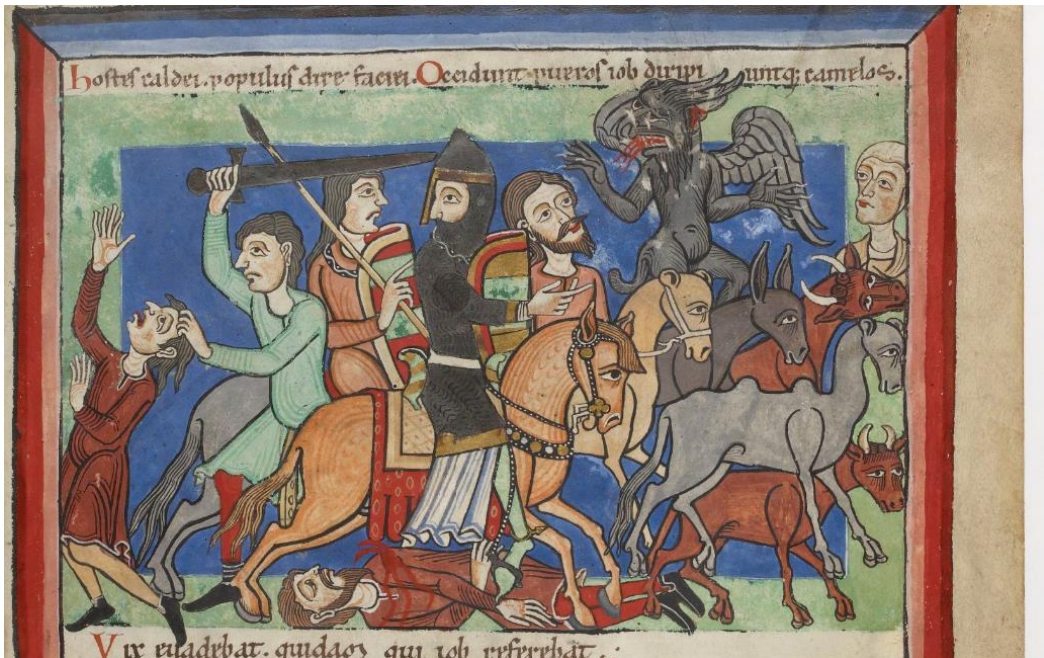 Hostes caldei. populus dire faciei. Occidunt pueros iob diripi untq; camelos.
Vix euadebat. quidam qui iob referebat.